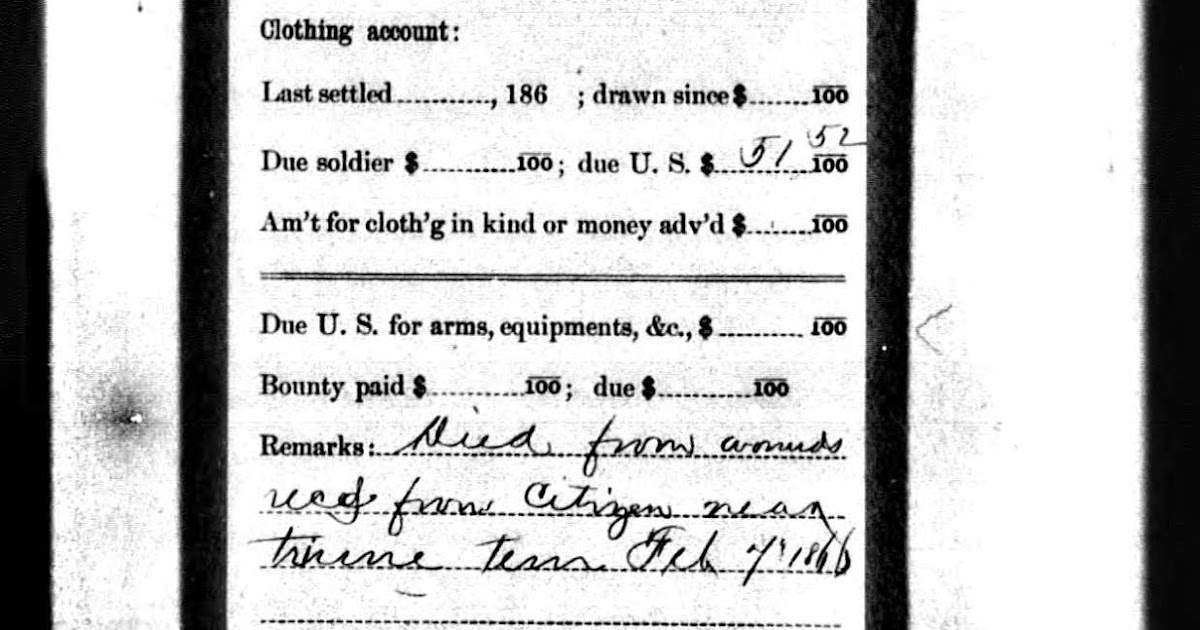 Clothing account:
Last settled ............, 186 ; drawn since $ ....... 100
Due soldier $ ............ 100 ; due U. S. $ 51 52/100
Am't for cloth'g in kind or money adv'd $ ........ 100
Due U. S. for arms, equipments, &c., $ ........... 100
Bounty paid $ ........... 100 ; due $ ........... 100
Remarks: Died from wounds
recd from Citizen near
triune tenn Feb 7" 1866